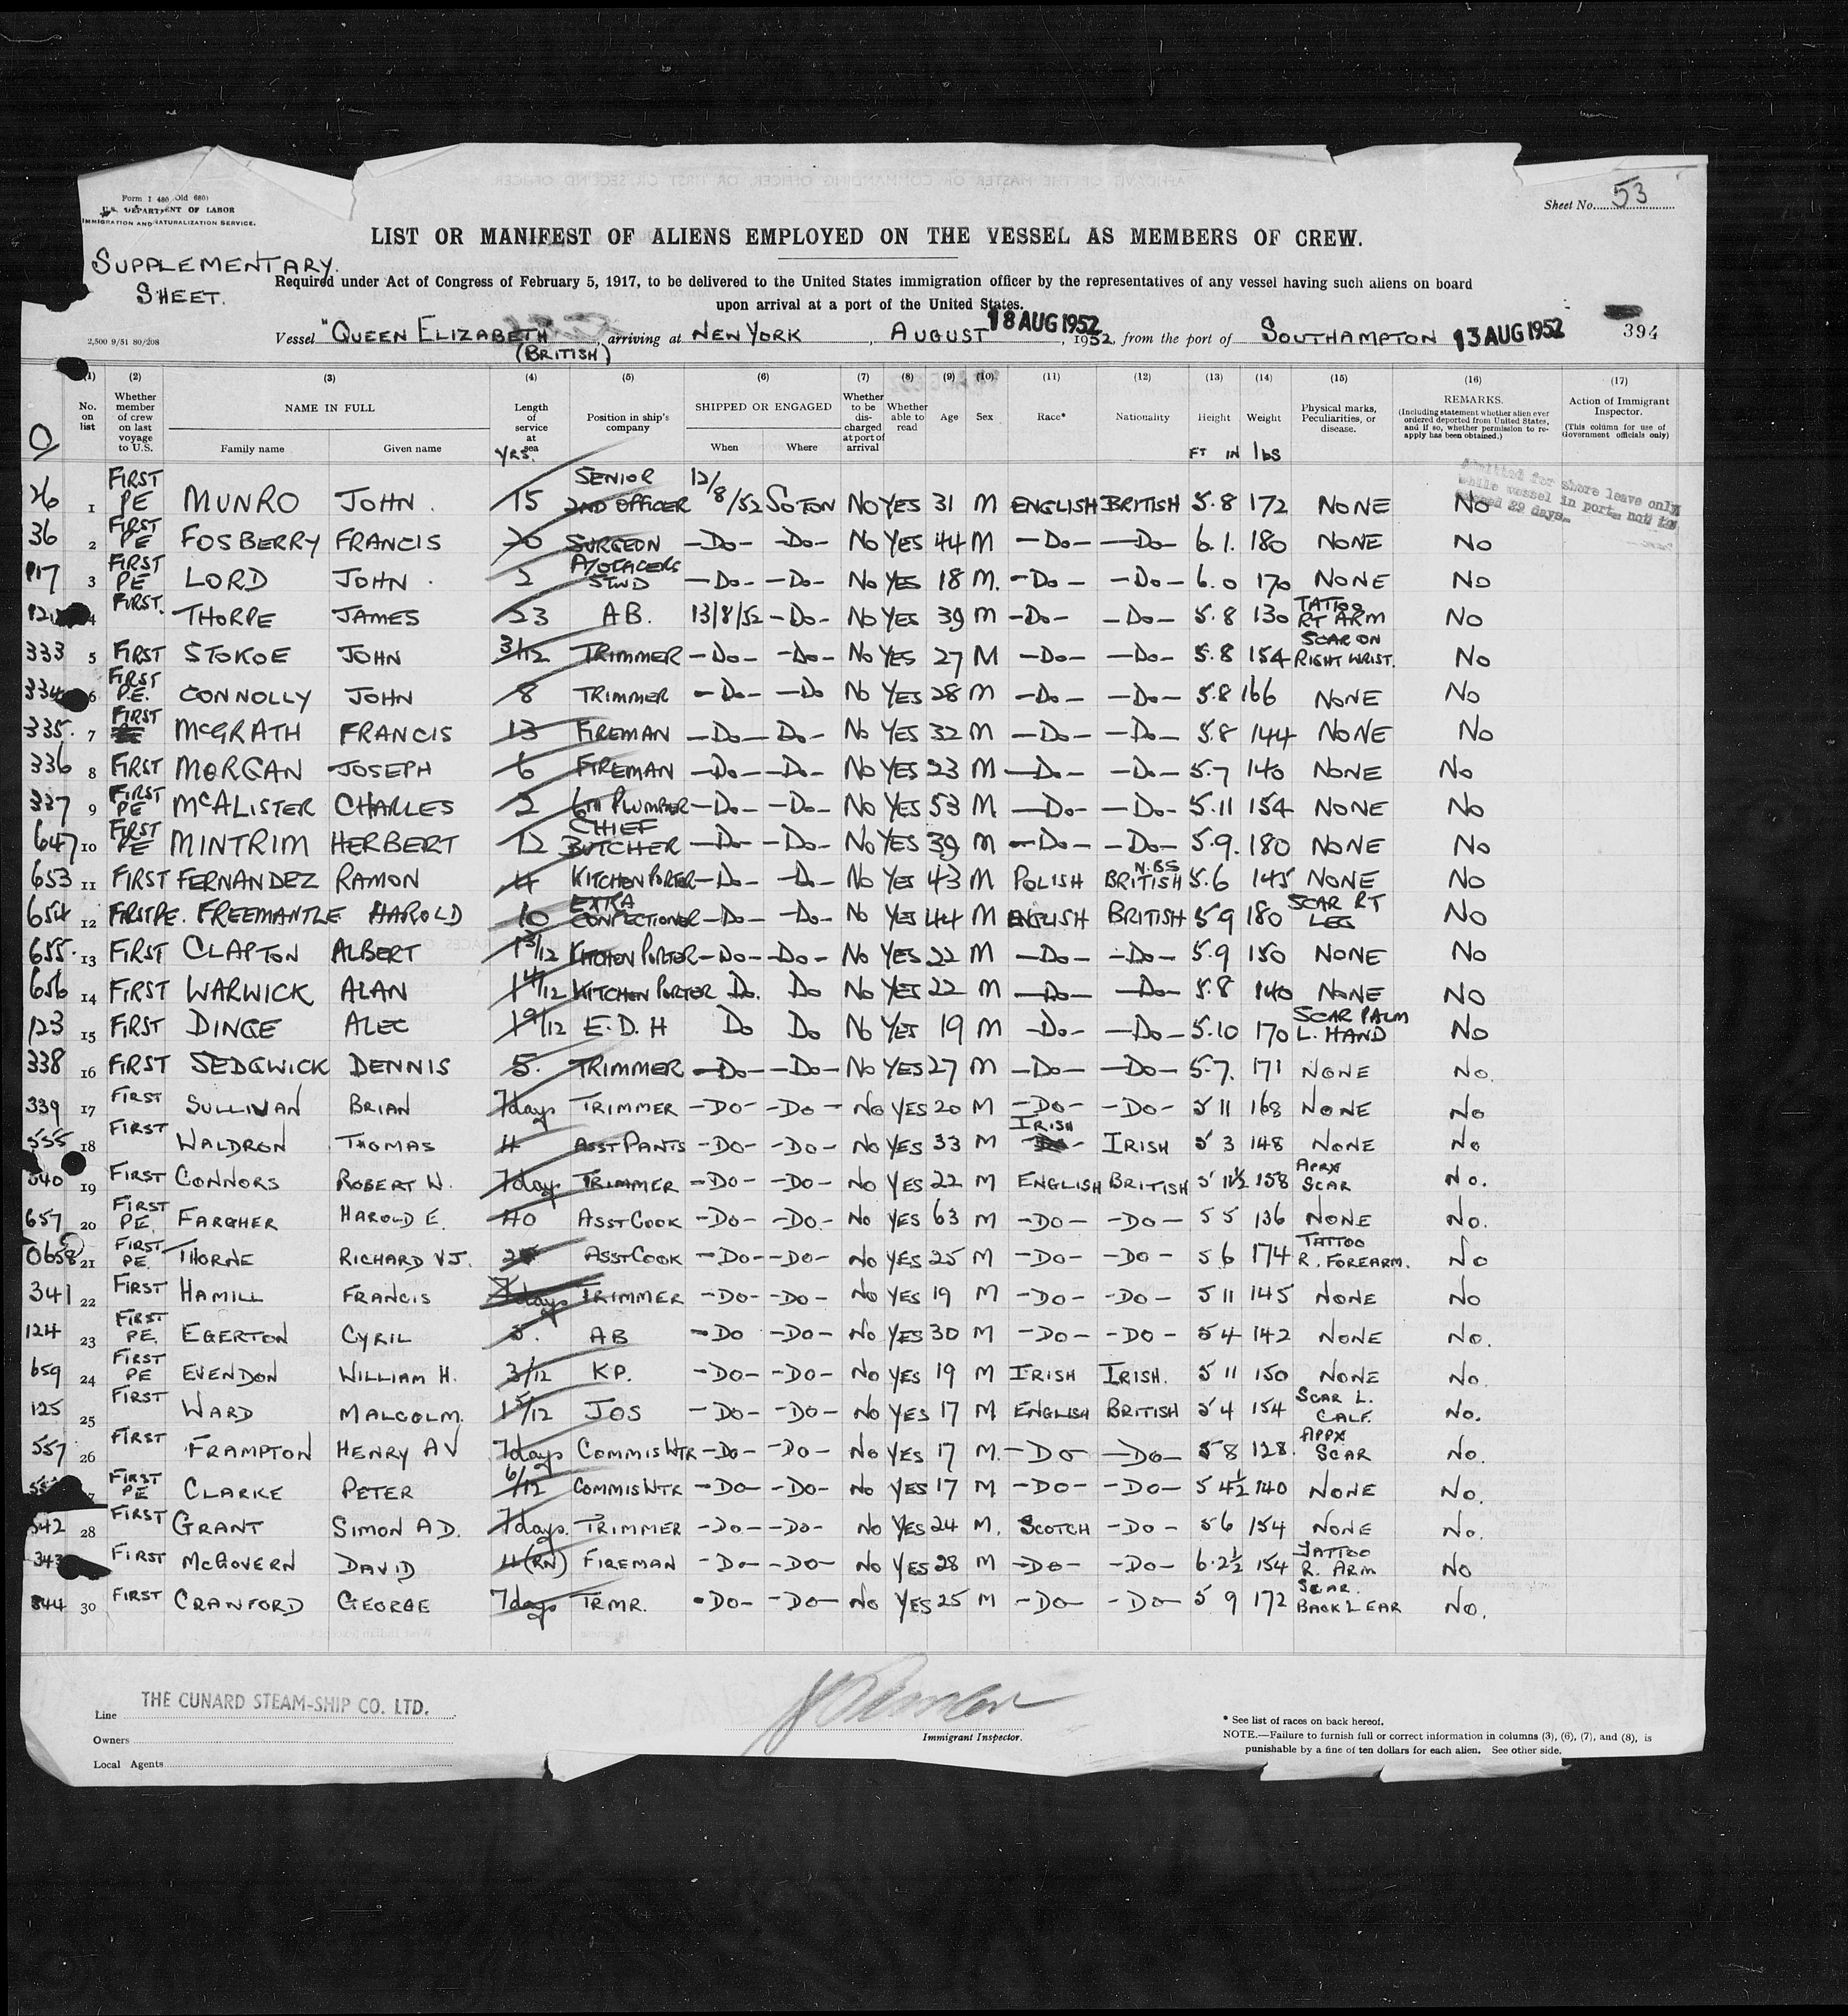 Form I 480 (Old 680)
U.S. DEPARTMENT OF LABOR
IMMIGRATION AND NATURALIZATION SERVICE.
Sheet No. 53
LIST OR MANIFEST OF ALIENS EMPLOYED ON THE VESSEL AS MEMBERS OF CREW.
SUPPLEMENTARY SHEET.
Required under Act of Congress of February 5, 1917, to be delivered to the United States immigration officer by the representatives of any vessel having such aliens on board
upon arrival at a port of the United States.
2,500 9/51 80/208
Vessel "QUEEN ELIZABETH" (BRITISH), arriving at NEW YORK, AUGUST 18 AUG 1952, 1952, from the port of SOUTHAMPTON 13 AUG 1952 394
(1) (2) (3) (4) (5) (6) (7) (8) (9) (10) (11) (12) (13) (14) (15) (16) (17)
No. on list Whether member of crew on last voyage to U.S. NAME IN FULL Family name Given name Length of service at sea YRS. Position in ship's company SHIPPED OR ENGAGED When Where Whether to be discharged at port of arrival Whether able to read Age Sex Race* Nationality Height FT IN Weight lbs Physical marks, Peculiarities, or disease. REMARKS. (Including statement whether alien ever ordered deported from United States, and if so, whether permission to reapply has been obtained.) Action of Immigrant Inspector. (This column for use of Government officials only)
Admitted for shore leave only while vessel in port not to exceed 29 days.
26 1 FIRST PE MUNRO JOHN. 15 SENIOR 2ND OFFICER 12/8/52 SOTON NO YES 31 M ENGLISH BRITISH 5.8 172 NONE NO
36 2 FIRST PE FOSBERRY FRANCIS 20 SURGEON -DO- -DO- NO YES 44 M -DO- -DO- 6.1. 180 NONE NO
117 3 FIRST PE LORD JOHN. 2 STWD -DO- -DO- NO YES 18 M. -DO- -DO- 6.0 170 NONE NO
4 FIRST. THORPE JAMES 23 AB. 13/8/52 -DO- NO YES 39 M -DO- -DO- 5.8 130 TATTOO RT ARM NO
333 5 FIRST STOKOE JOHN 3/12 TRIMMER -DO- -DO- NO YES 27 M -DO- -DO- 5.8 154 SCAR ON RIGHT WRIST. NO
334 6 FIRST P.E. CONNOLLY JOHN 8 TRIMMER -DO- -DO NO YES 28 M -DO- -DO- 5.8 166 NONE NO
335. 7 FIRST MCGRATH FRANCIS 13 FIREMAN -DO- -DO- NO YES 32 M -DO- -DO- 5.8 144 NONE NO
336 8 FIRST MORGAN JOSEPH 6 FIREMAN -DO- -DO- NO YES 23 M -DO- -DO- 5.7 140 NONE NO
337 9 FIRST PE MCALISTER CHARLES 2 6TH PLUMBER -DO- -DO- NO YES 53 M -DO- -DO- 5.11 154 NONE NO
647 10 FIRST PE MINTRIM HERBERT 12 CHIEF BUTCHER -DO- -DO- NO YES 39 M -DO- -DO- 5.9. 180 NONE NO
653 11 FIRST FERNANDEZ RAMON 4 KITCHEN PORTER -DO- -DO- NO YES 43 M POLISH N.BS BRITISH 5.6 145 NONE NO
654 12 FIRST PE. FREEMANTLE HAROLD 10 EXTRA CONFECTIONER -DO- -DO- NO YES 44 M ENGLISH BRITISH 5.9 180 SCAR RT LEG NO
655. 13 FIRST CLAPTON ALBERT 1 5/12 KITCHEN PORTER -DO- -DO- NO YES 22 M -DO- -DO- 5.9 150 NONE NO
656 14 FIRST WARWICK ALAN 1 4/12 KITCHEN PORTER DO. DO NO YES 22 M -DO- -DO- 5.8 140 NONE NO
123 15 FIRST DINGE ALEC 1 9/12 E.D.H DO DO NO YES 19 M -DO- -DO- 5.10 170 SCAR PALM L. HAND NO
338 16 FIRST SEDGWICK DENNIS 5. TRIMMER -DO- -DO- NO YES 27 M -DO- -DO- 5.7. 171 NONE NO.
339 17 FIRST SULLIVAN BRIAN 7 days TRIMMER -DO- -DO- NO YES 20 M -DO- -DO- 5 11 168 NONE NO
555 18 FIRST WALDRON THOMAS 4 ASST PANTS -DO- -DO- NO YES 33 M IRISH IRISH 5 3 148 NONE NO
340 19 FIRST CONNORS ROBERT W. 7 days TRIMMER -DO- -DO- NO YES 22 M ENGLISH BRITISH 5 11½ 158 APPX SCAR NO.
657 20 FIRST PE. FARGHER HAROLD E. 40 ASST COOK -DO- -DO- NO YES 63 M -DO- -DO- 5 5 136 NONE NO.
0658 21 FIRST PE. THORNE RICHARD V J. ASST COOK -DO- -DO- NO YES 25 M -DO- -DO- 5 6 174 TATTOO R. FOREARM. NO
341 22 FIRST HAMILL FRANCIS 7 days TRIMMER -DO- -DO- NO YES 19 M -DO- -DO- 5 11 145 NONE NO
124 23 FIRST PE. EGERTON CYRIL 5. AB -DO -DO- NO YES 30 M -DO- -DO- 5 4 142 NONE NO.
659 24 FIRST PE EVENDON WILLIAM H. 3/12 KP. -DO- -DO- NO YES 19 M IRISH IRISH. 5 11 150 NONE NO.
125 25 FIRST WARD MALCOLM. 1 5/12 JOS -DO- -DO- NO YES 17 M ENGLISH BRITISH 5 4 154 SCAR L. CALF. NO.
557 26 FIRST FRAMPTON HENRY A V 7 days COMMIS WTR -DO- -DO- NO YES 17 M. -DO -DO- 5 8 128. APPX SCAR NO.
FIRST PE CLARKE PETER 6/12 COMMIS WTR -DO- -DO- NO YES 17 M -DO- -DO- 5 4½ 140 NONE NO.
342 28 FIRST GRANT SIMON A D. 7 days. TRIMMER -DO- -DO- NO YES 24 M. SCOTCH -DO- 5 6 154 NONE NO.
343 FIRST MCGOVERN DAVID 4 (RN) FIREMAN -DO- -DO- NO YES 28 M -DO- -DO- 6.2½ 154 TATTOO R. ARM NO
344 30 FIRST CRANFORD GEORGE 7 days TRMR. -DO- -DO- NO YES 25 M -DO- -DO- 5 9 172 SCAR. BACK L EAR NO.
Line THE CUNARD STEAM-SHIP CO. LTD.
Owners
Local Agents
Immigrant Inspector.
* See list of races on back hereof.
NOTE.—Failure to furnish full or correct information in columns (3), (6), (7), and (8), is
punishable by a fine of ten dollars for each alien. See other side.